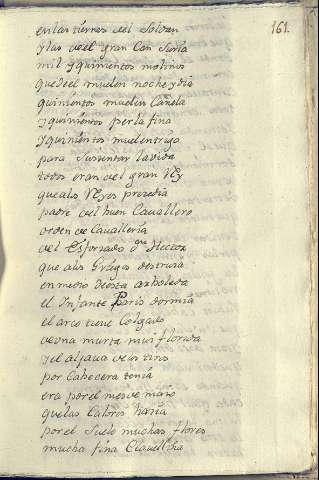 161.
en las tierras del Soldan
y las del gran Can Suria
mil y quinientos molinos
que del muelen noche y dia
quinientos muelen Canela
y quinientos perla fina
y quinientos muelen trigo
para Sustentar la vida
todos eran del gran Rey
que a los Reyes precedia
padre del buen Cavallero
orden de Cavalleria
del Esforsado Dn Hector
que a los Griegos destruia
en medio desta arboleda
el Infante Paris dormia
el arco tiene Colgado
de una murta mui florida
y el aljava de los tiros
por Cabecera tenia
era por el mes de maio
que las Calores hacia
por el Suelo muchas flores
mucha fina Clavellina